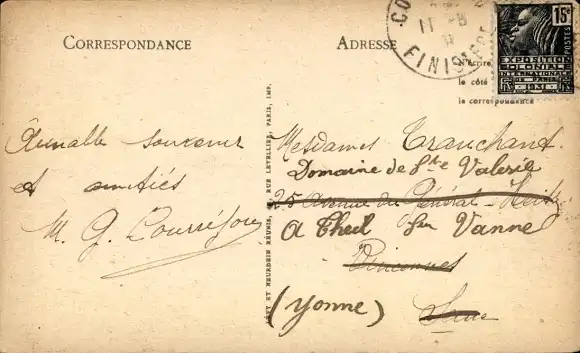 CORRESPONDANCE
ADRESSE
CO
11 -8
31
FINISTERE
15c
POSTES
EXPOSITION
COLONIALE
INTERNATIONALE
DE PARIS
1931
N'écrire
le côté
la correspondance
LEVY ET NEURDEIN RÉUNIS, RUE LETELLIER, PARIS, IMP.
souvenir
et amitiés
M. G.
Mesdames Tranchant
Domaine de Ste Valérie
25 Avenue du Général
A Theil sur Vanne
Vincennes
(Yonne)
Seine